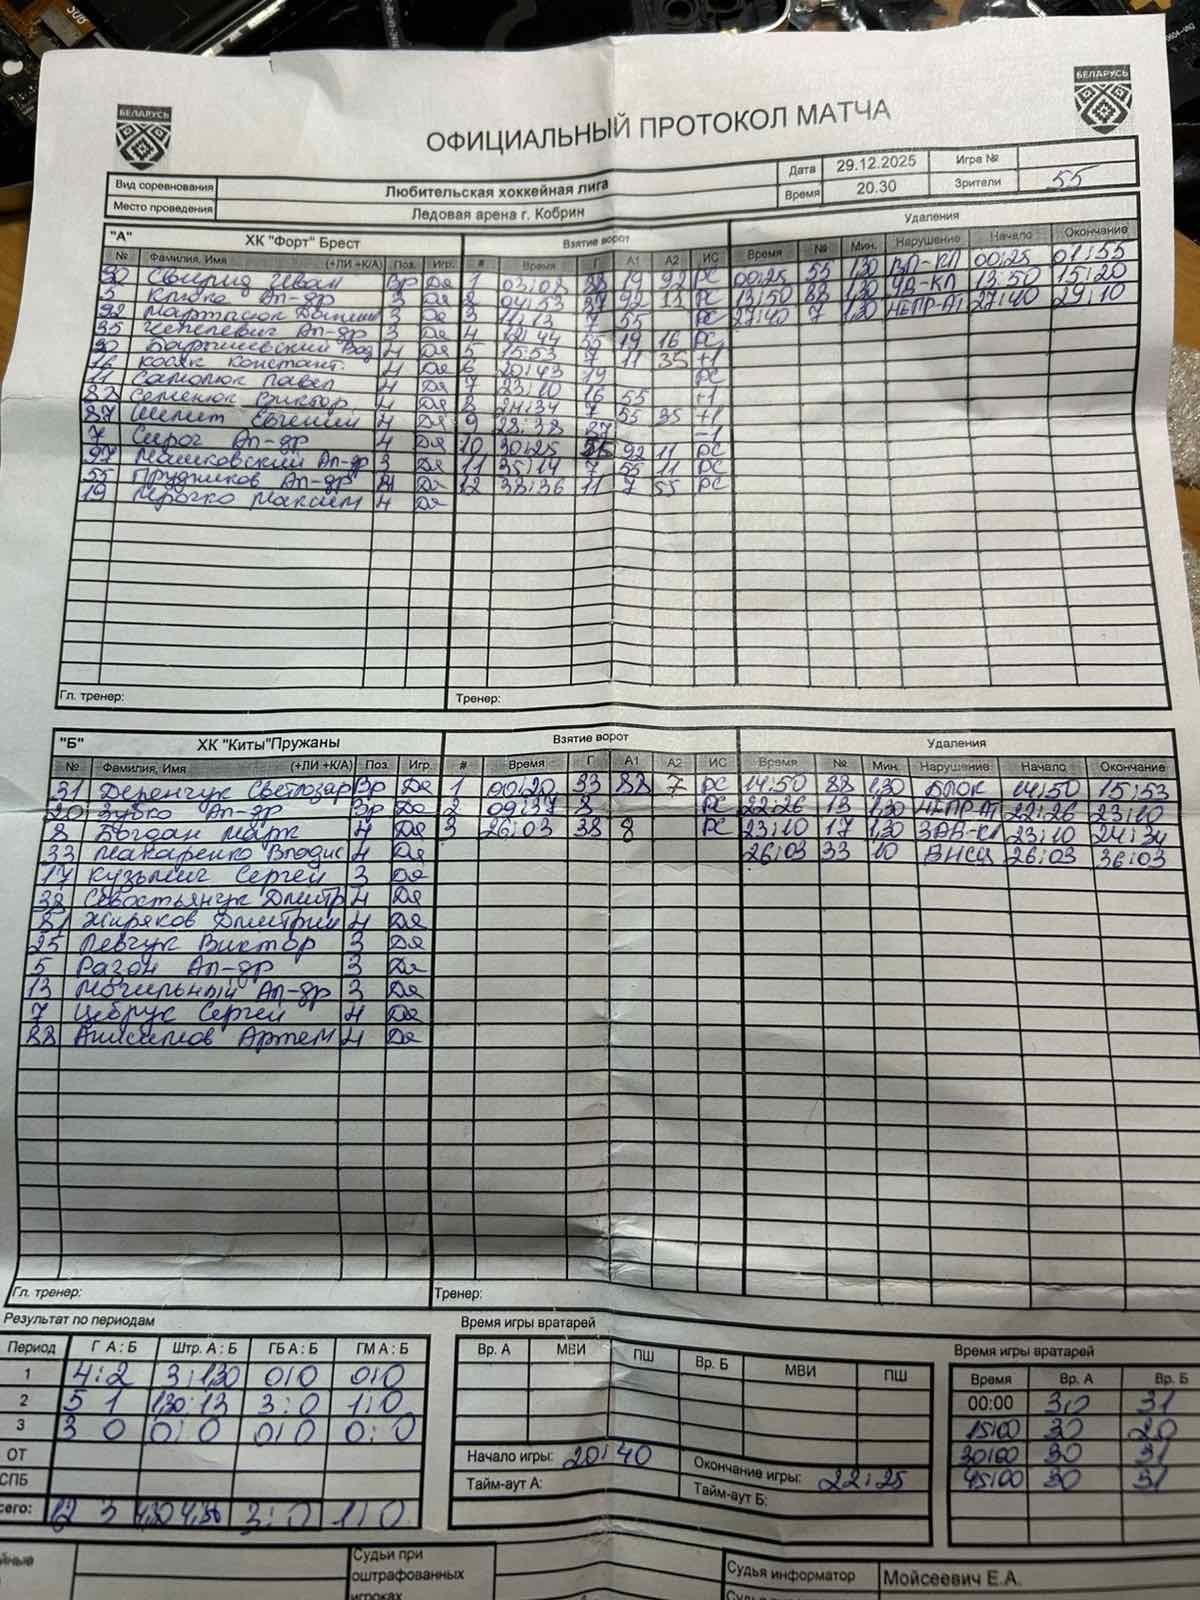 БЕЛАРУСЬ
БЕЛАРУСЬ
ОФИЦИАЛЬНЫЙ ПРОТОКОЛ МАТЧА
Вид соревнования Любительская хоккейная лига Дата 29.12.2025 Игра №
Место проведения Ледовая арена г. Кобрин Время 20.30 Зрители 55
"А" ХК "Форт" Брест Взятие ворот Удаления
№ Фамилия, Имя (+ЛИ +К/А) Поз. Игр. # Время Г А1 А2 ИС Время № Мин. Нарушение Начало Окончание
Иван Вр Да 1 03:08 88 19 92 РС 00:25 55 1,30 00:25 01:55
Ал-др З Да 2 04:53 87 92 РС 13:50 88 1,30 13:50 15:20
92 Мартысюк З Да 3 11:13 7 55 РС 27:40 7 1,30 НЕПР-АТ 27:40 29:10
35 Ал-др З Да 4 12:44 55 19 16 РС
Да 5 15:53 7 11 35 +1
16 Косяк Констант. Да 6 20:43 19 РС
11 Самолюк Павел Да 7 23:10 16 55 +1
Семенюк Виктор Да 8 24:34 7 55 35 +1
87 Шепит Евгений Да 9 28:38 87 -1
7 Сирог Ал-др Да 10 30:25 92 11 РС
97 Машковский Ал-др З Да 11 35:14 7 55 11 РС
55 Прудников Ал-др Да 12 38:36 11 7 55 РС
19 Мрочко Максим Да
Гл. тренер: Тренер:
"Б" ХК "Киты"Пружаны Взятие ворот Удаления
№ Фамилия, Имя (+ЛИ +К/А) Поз. Игр. # Время Г А1 А2 ИС Время № Мин. Нарушение Начало Окончание
31 Деренчук Светозар Вр Да 1 00:20 33 88 7 РС 14:50 88 1,30 БЛОК 14:50 15:53
20 Зубко Ал-др Вр Да 2 09:37 8 РС 22:26 13 1,30 НЕПР-АТ 22:26 23:10
8 Богдан Марк Да 3 26:03 38 8 РС 23:10 17 1,30 23:10 24:34
33 Макаренко Владис Да 26:03 33 10 26:03 36:03
17 Кузьмич Сергей З Да
38 Севостьянчук Дмитр Да
81 Жиряков Дмитрий Да
25 Левчук Виктор З Да
5 Разон Ал-др З Да
13 Могильный Ал-др З Да
7 Цебрук Сергей Да
88 Анисимов Артем Да
Гл. тренер: Тренер:
Результат по периодам Время игры вратарей
Период Г А : Б Штр. А : Б ГБ А : Б ГМ А : Б Вр. А МВИ ПШ Вр. Б МВИ ПШ Время игры вратарей
1 4:2 3:1,30 0:0 0:0 Время Вр. А Вр. Б
2 5 1 1,30:13 3:0 1:0 00:00 30 31
3 3 0 0:0 0:0 0:0 15:00 30 20
ОТ 30:00 30 31
СПБ Начало игры: 20:40 Окончание игры: 22:25 45:00 30 31
сего: 12 3 3:0 1:0 Тайм-аут А: Тайм-аут Б:
Судьи при оштрафованных игроках Судья информатор Мойсеевич Е.А.